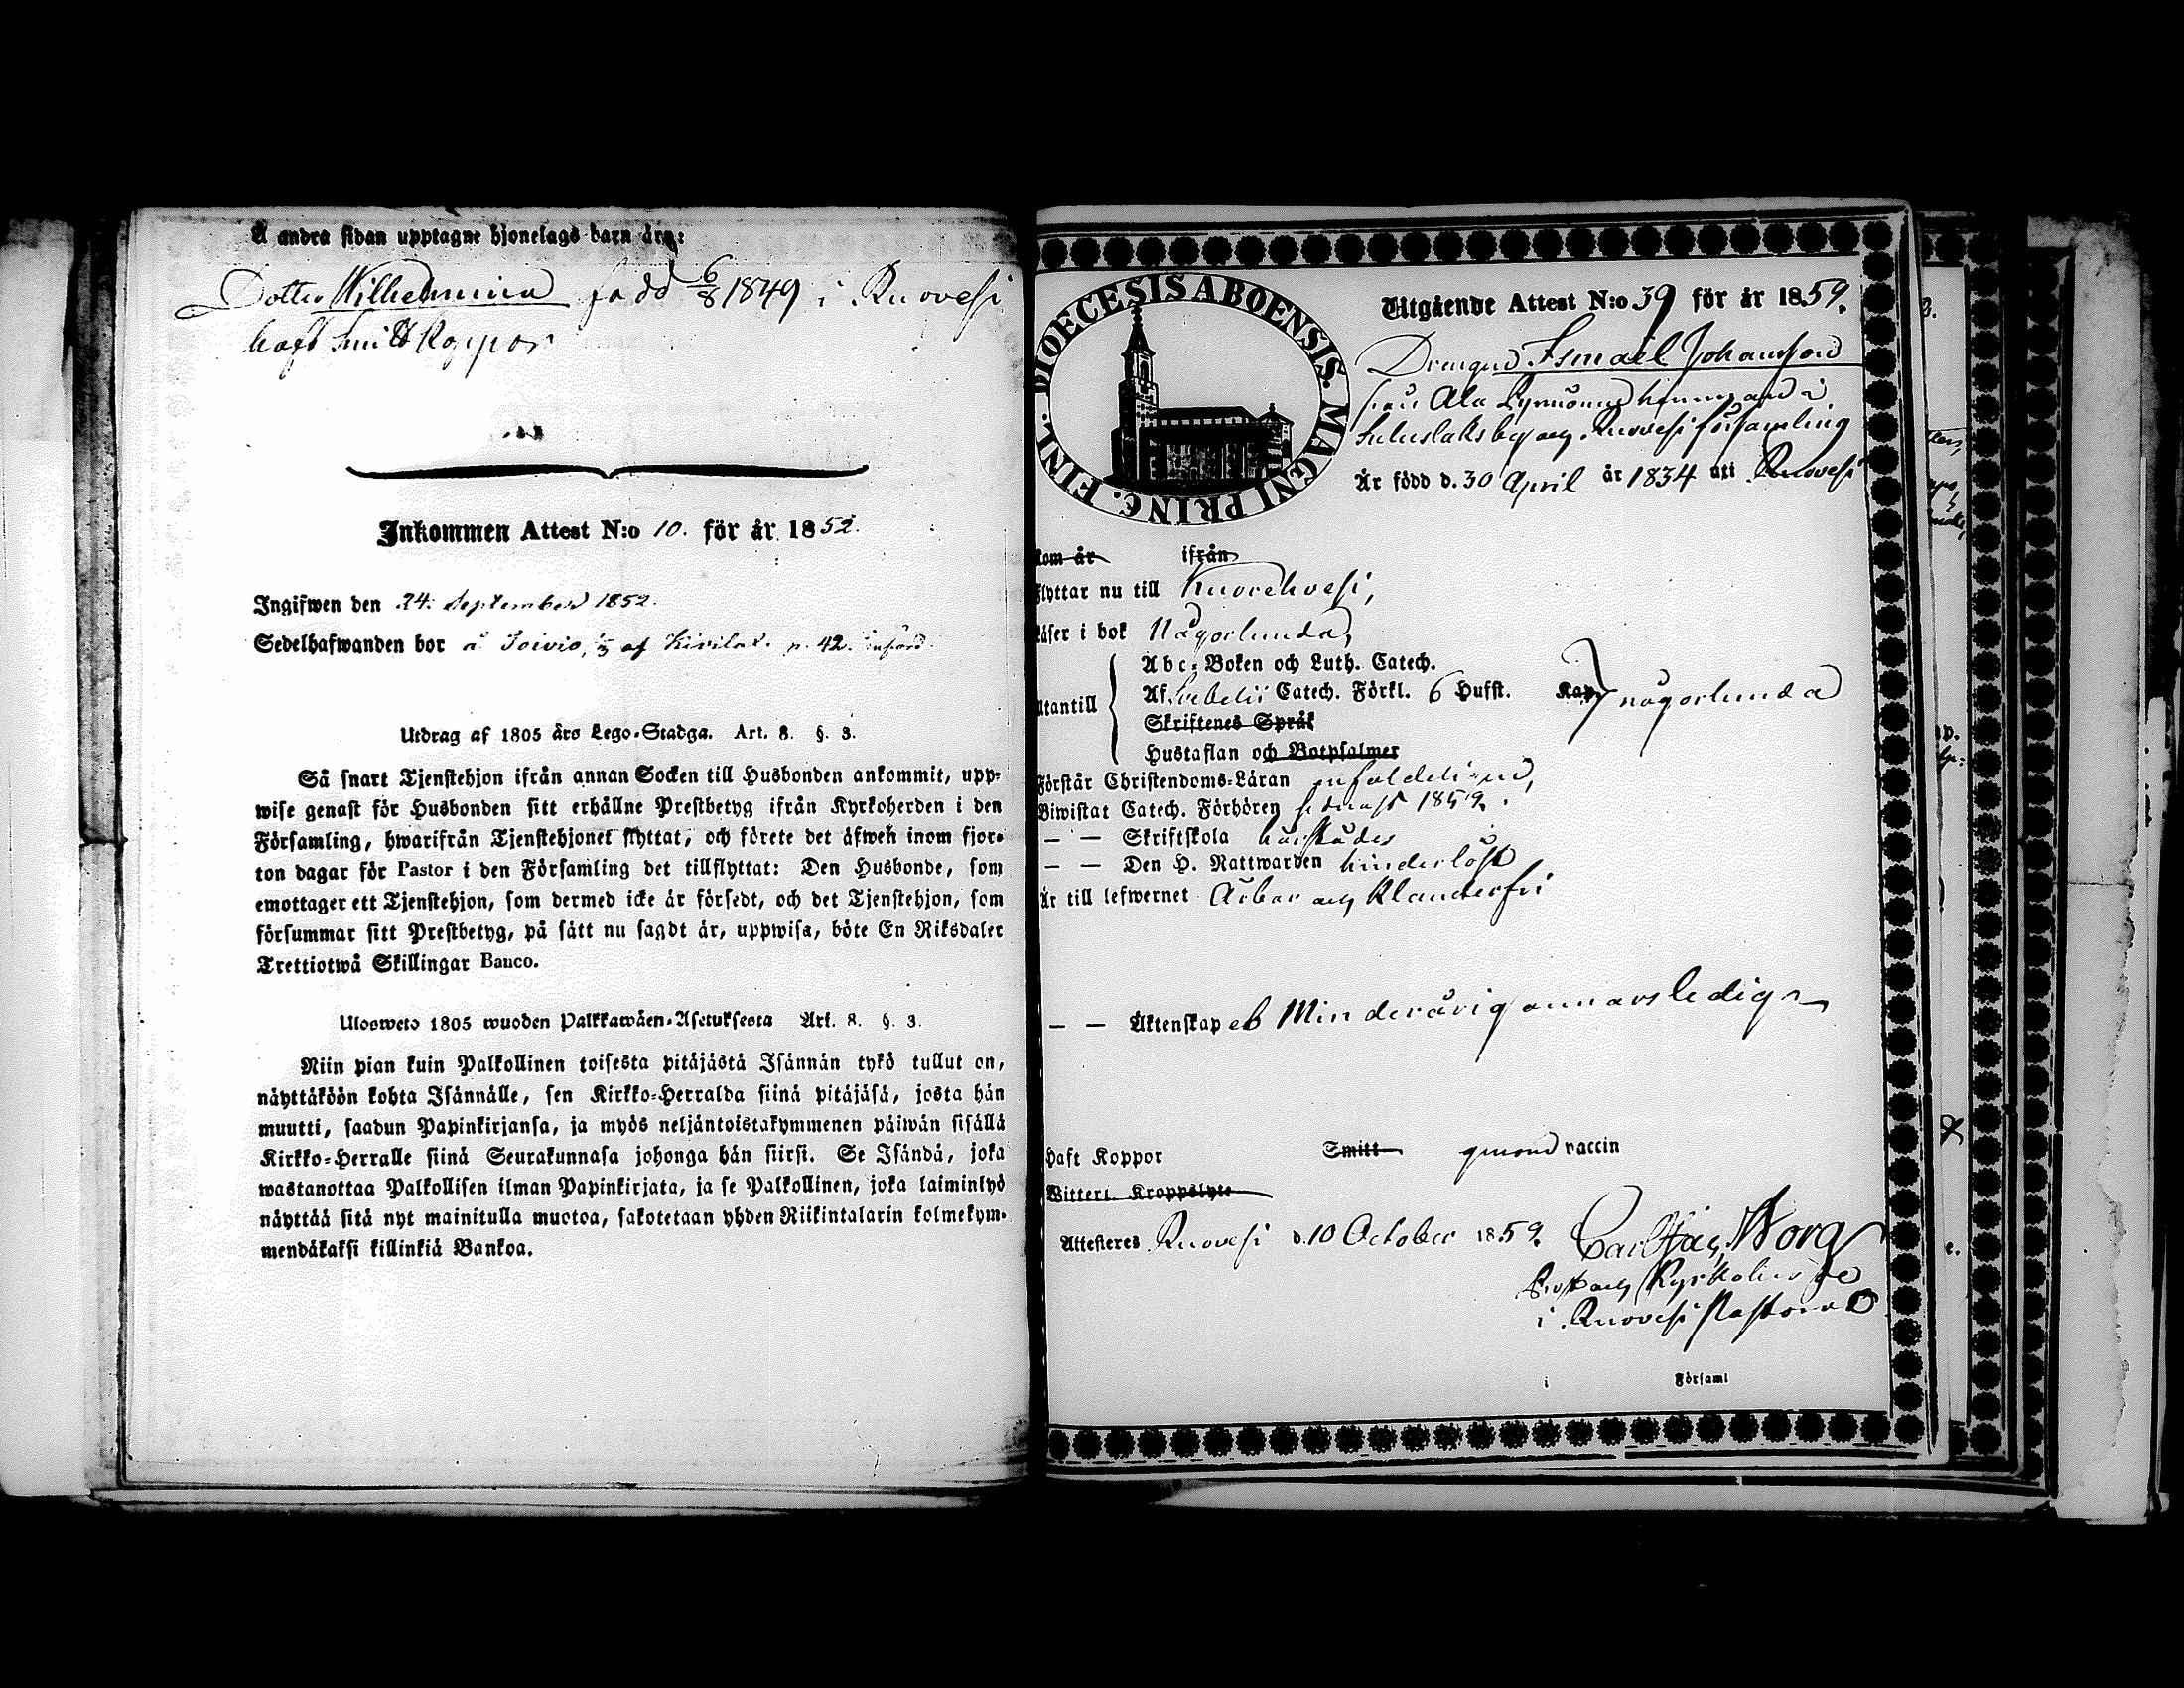 Å andra sidan upptagne hjonelags barn äro:
Dotter Wilhelmina född 6/8 1849 i Ruovesi
haft Smitt Koppor
Inkommen Attest N:o 10. för år 1852.
Ingifwen den 24. September 1852.
Sedelhafwanden bor å Toivio, 1/3 af Kivilax. p. 42. införd.
Utdrag af 1805 års Lego-Stadga. Art. 8. §. 3.
Så snart Tjenstehjon ifrån annan Socken till Husbonden ankommit, upp-
wise genast för Husbonden sitt erhållne Prestbetyg ifrån Kyrkoherden i den
Församling, hwarifrån Tjenstehjonet flyttat, och förete det äfwen inom fjor-
ton dagar för Pastor i den Församling det tillflyttat: Den Husbonde, som
emottager ett Tjenstehjon, som dermed icke är försedt, och det Tjenstehjon, som
försummar sitt Prestbetyg, på sätt nu sagdt är, uppwisa, böte En Riksdaler
Trettiotwå Skillingar Banco.
Ulosweto 1805 wuoden Palkkawäen-Asetuksesta Art. 8. §. 3.
Niin pian kuin Palkollinen toisesta pitäjästä Isännän tykö tullut on,
näyttäköön kohta Isännälle, sen Kirkko-Herralda siinä pitäjäsä, josta hän
muutti, saadun Papinkirjansa, ja myös neljäntoistakymmenen päiwän sisällä
Kirkko-Herralle siinä Seurakunnasa johonga hän siirsi. Se Isändä, joka
wastanottaa Palkollisen ilman Papinkirjata, ja se Palkollinen, joka laiminlyö
näyttää sitä nyt mainitulla muotoa, sakotetaan yhden Riikintalarin kolmekym-
mendäkaksi killinkiä Bankoa.
DIOECESIS ABOENSIS. MAGNI PRINC. FINL.
Utgående Attest N:o 39 för år 1859.
Drengen Ismael Johansson
från Ala hemman i
by och Ruovesi församling
Är född d. 30 April år 1834 uti Ruovesi
kom år ifrån
flyttar nu till Kuorehvesi,
läser i bok Någorlunda,
Utantill
Abc-Boken och Luth. Catech.
Af Svebelii Catech. Förkl. 6 Hufst. Kap. någorlunda
Skriftenes Språk
Hustaflan och Botpsalmer
Förstår Christendoms-Läran enfaldeligen,
Biwistat Catech. Förhören sednast 1859.
— — Skriftskola härstädes
— — Den H. Nattwarden hinderlöst
Är till lefwernet Ärbar och klanderfri
— — Äktenskap eb Minderårig annars ledig
Haft Koppor Smitt genom vaccin
Witterl. Kroppslyte
Attesteres Ruovesi d. 10 October 1859. Carl Borg
Prost och Kyrkoherde
i Ruovesi Pastorat
i Församl